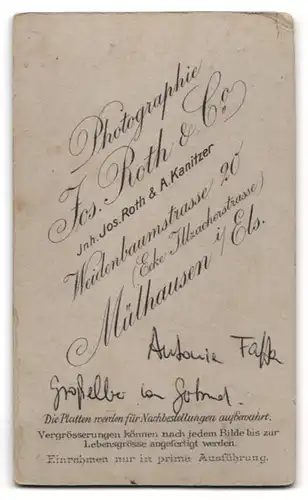 Photographie
Jos. Roth & Co.
Jnh. Jos. Roth & A. Kanitzer
Weidenbaumstrasse 20
(Ecke Illzacherstrasse)
Mülhausen i/Els.
Antonie
Die Platten werden für Nachbestellungen aufbewahrt.
Vergrösserungen können nach jedem Bilde bis zur
Lebensgrösse angefertigt werden.
Einrahmen nur in prima Ausführung.